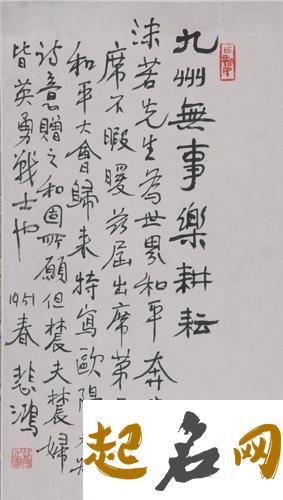 九州無事樂耕耘
沫若先生為世界和平奔
席不暇暖茲屆出席第
和平大會歸來特寫歐陽
詩意贈之和固所願但農夫農婦
皆英勇戰士也 1951春 悲鴻
起名网